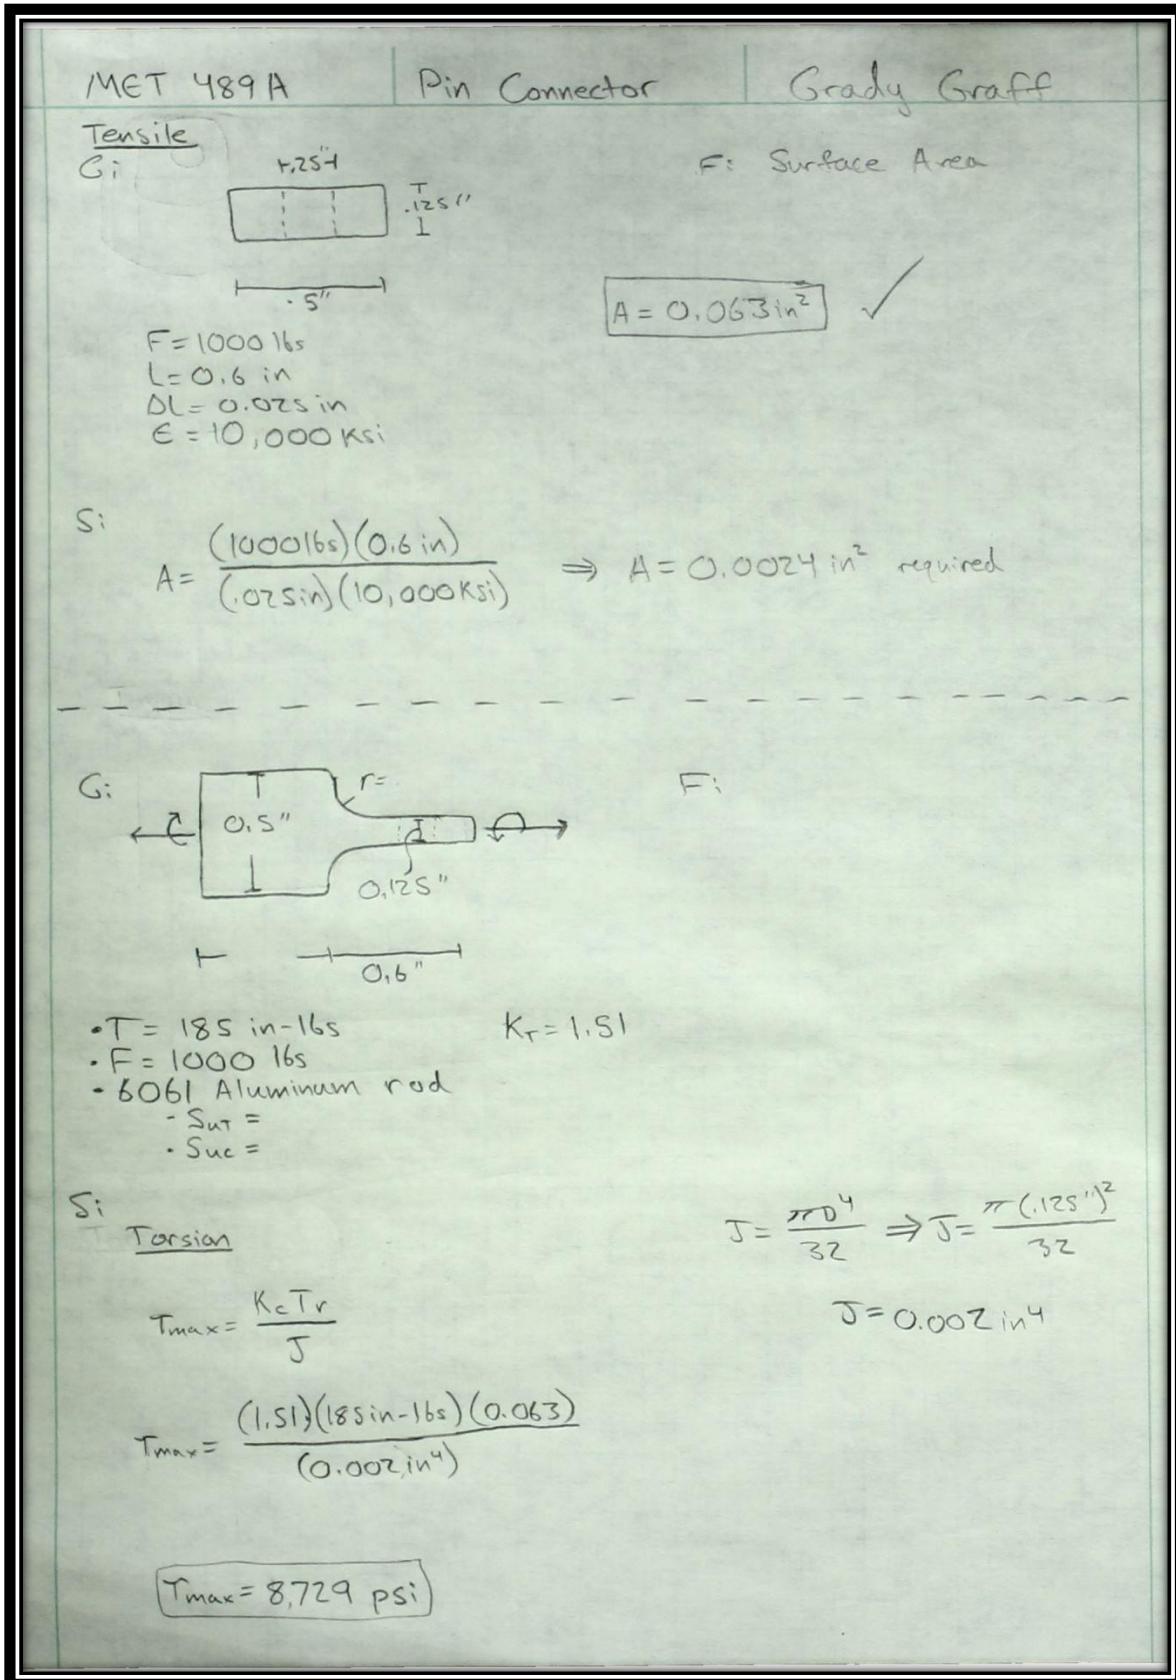 MET 489A Pin Connector Grady Graff
Tensile
G: F: Surface Area
.25"
.125"
.5"
A = 0.063 in²
F = 1000 lbs
L = 0.6 in
ΔL = 0.025 in
E = 10,000 Ksi
S:
A = (1000 lbs)(0.6 in) / (.025in)(10,000 Ksi) ⇒ A = 0.0024 in² required
G: r= F:
0.5"
0.125"
0.6"
• T = 185 in-lbs K_T = 1.51
• F = 1000 lbs
- 6061 Aluminum rod
- Sut =
• Suc =
S:
Torsian
J = πD⁴ / 32 ⇒ J = π(.125")² / 32
Tmax = KcTr / J
J = 0.002 in⁴
Tmax = (1.51)(185in-lbs)(0.063) / (0.002 in⁴)
Tmax = 8,729 psi